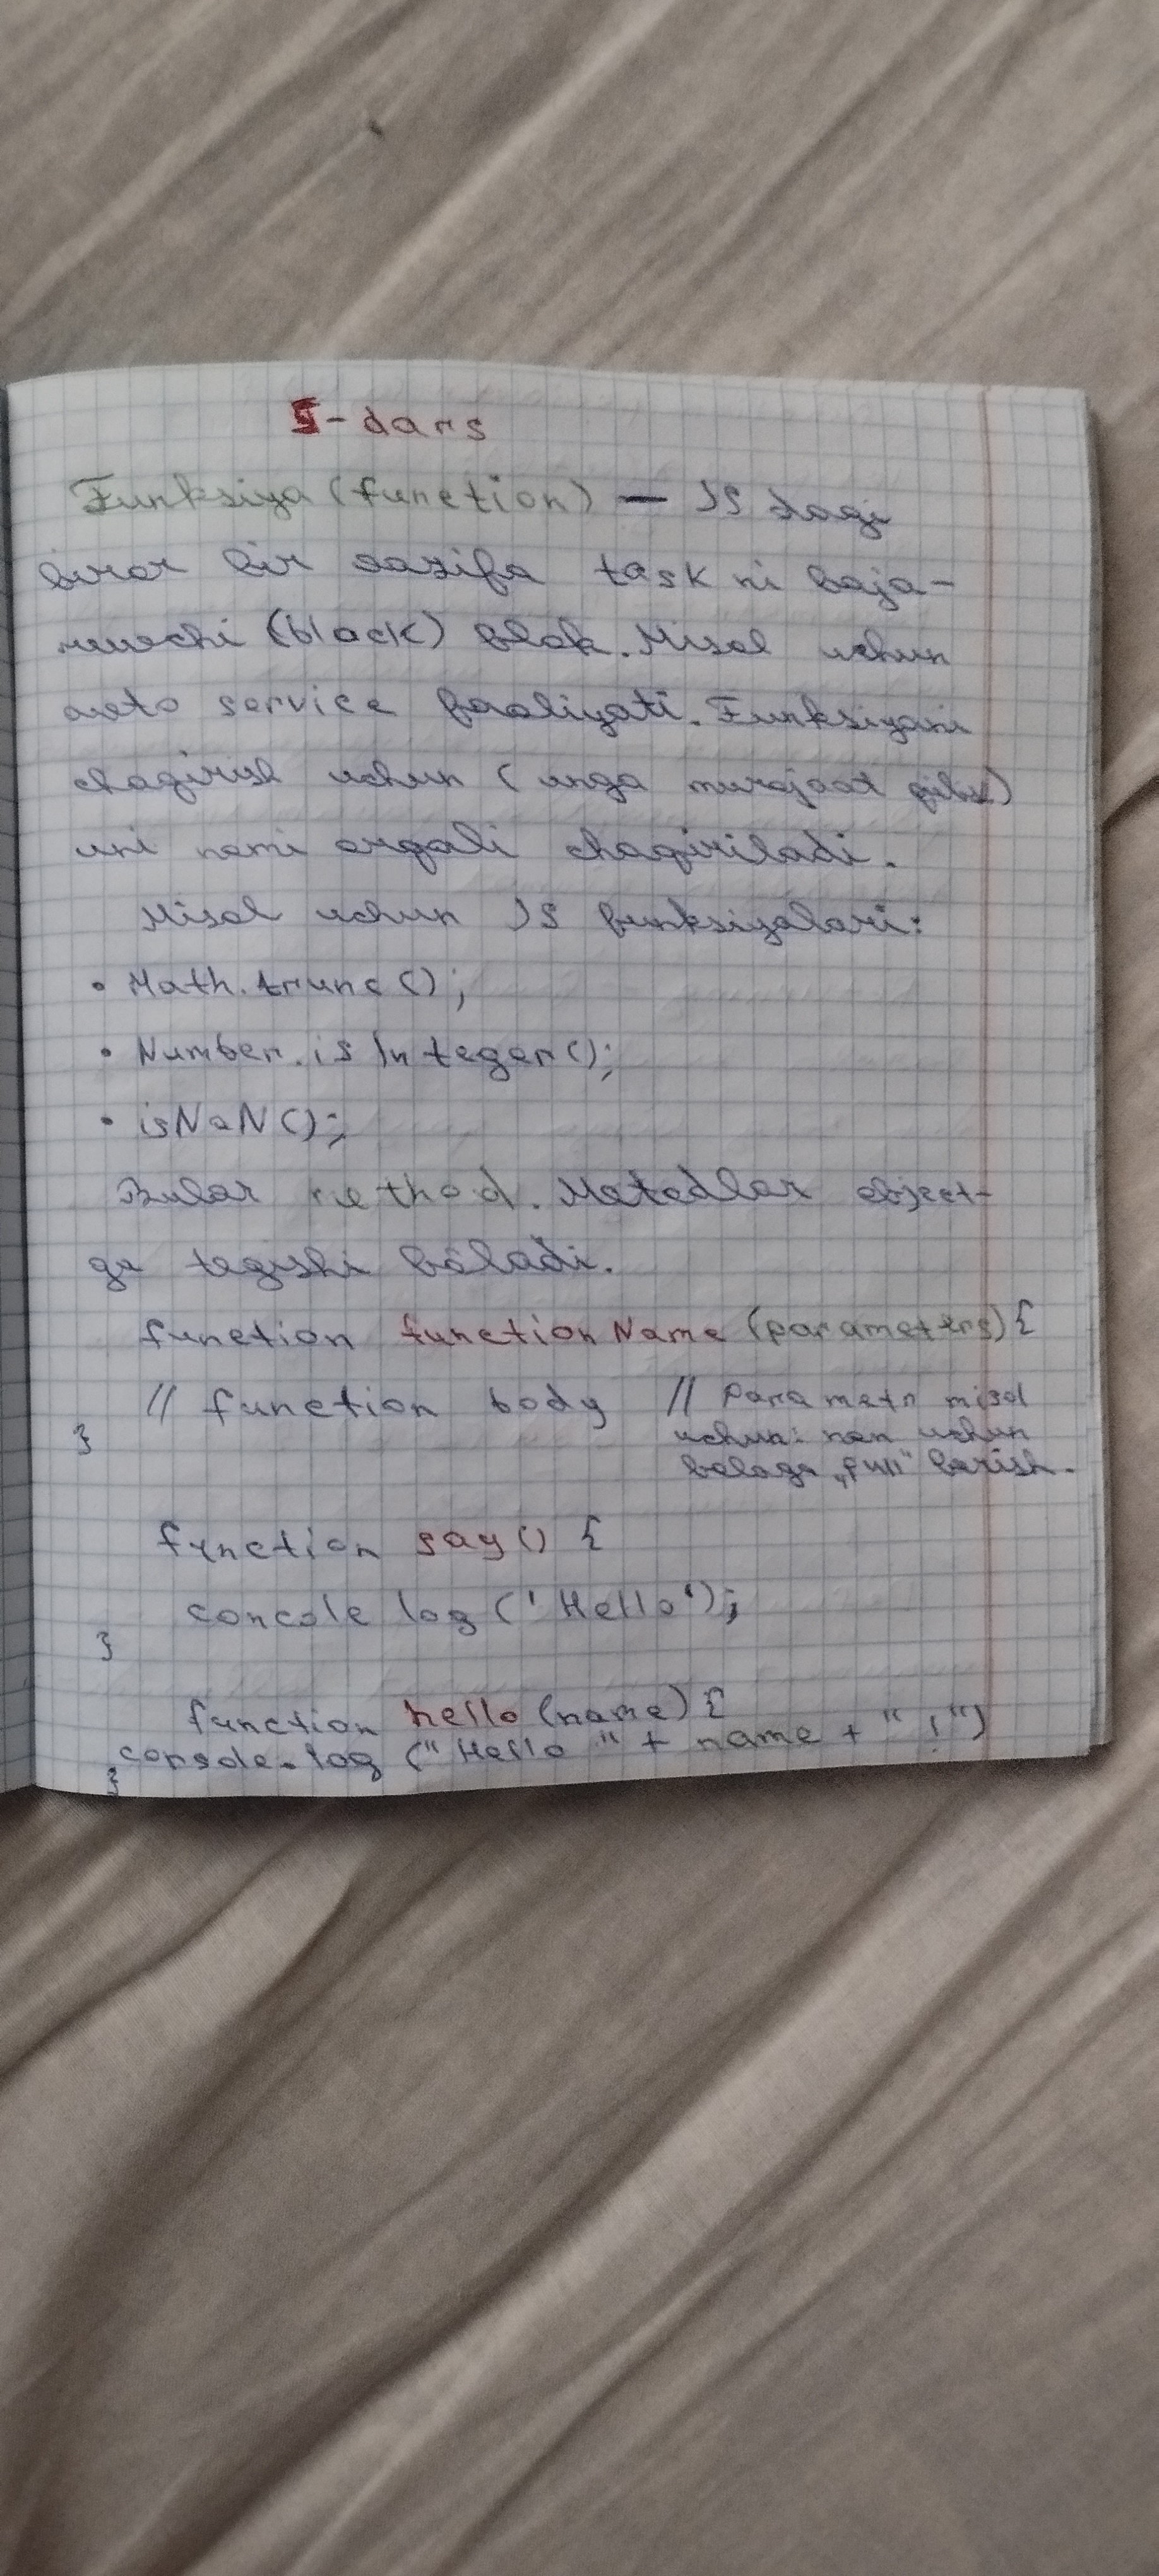 5-dars
Funksiya (function) — JS dagi
biror bir vazifa task ni baja-
ruvchi (block) blok. Misol uchun
avto service faoliyati. Funksiyani
chaqirish uchun (unga murojaat qilish)
uni nomi orqali chaqiriladi.
Misol uchun JS funksiyalari:
• Math.trunc();
• Number.isInteger();
• isNaN();
Bular method. Metodlar object-
ga tegishi bóladi.
function functionName (parameters) {
// function body // Parametr misol
uchun: non uchun
}
bolaga „pull" berish.
function say() {
console log ('Hello');
}
function hello (name) {
console.log ("Hello " + name + " !")
}